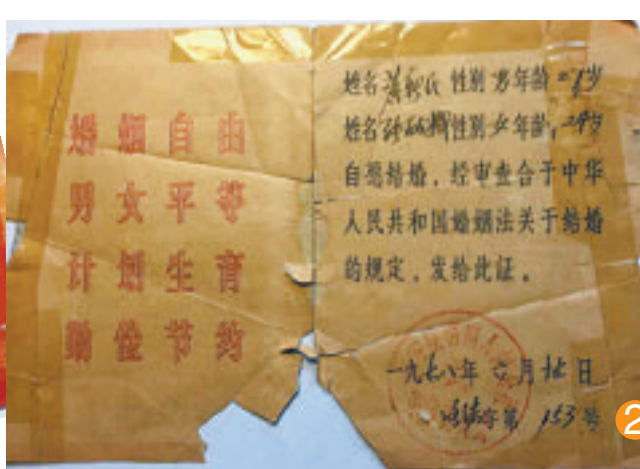 婚姻自由
男女平等
计划生育
勤俭节约
姓名 性别 男 年龄 二 岁
姓名 性别 女 年龄 岁
自愿结婚，经审查合于中华
人民共和国婚姻法关于结婚
的规定，发给此证。
一九七八年 月 日
字第 153 号
2